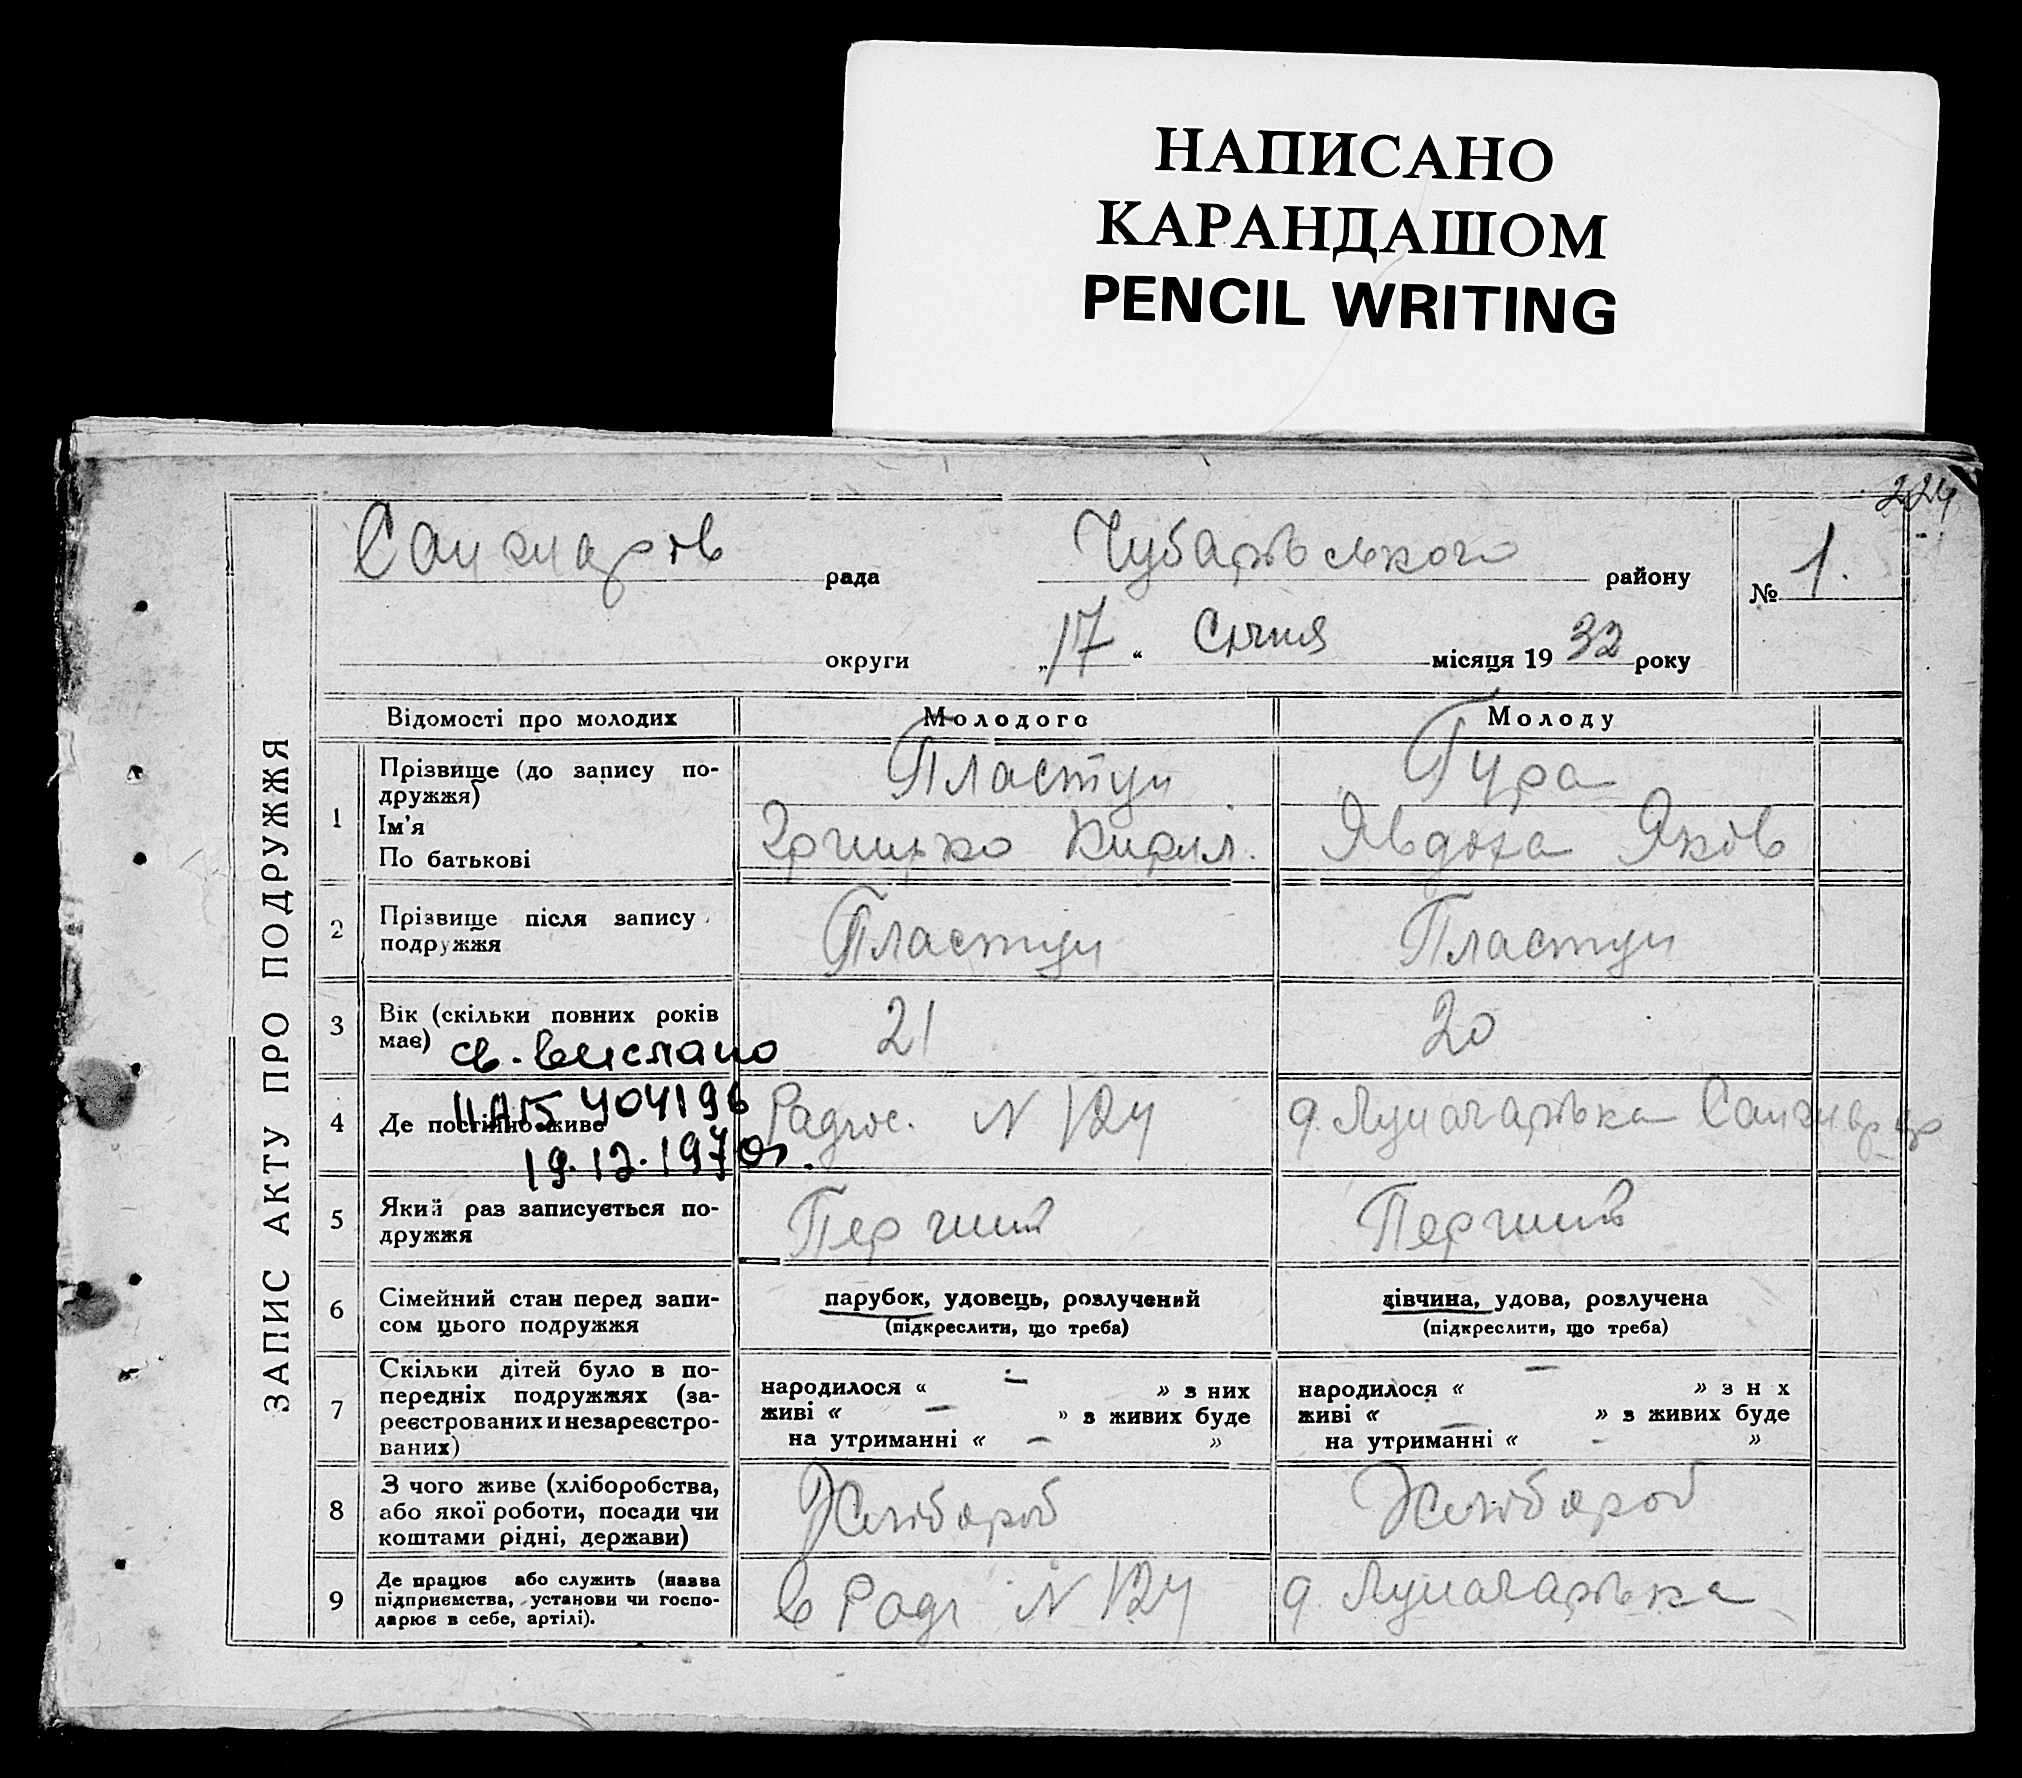 НАПИСАНО
КАРАНДАШОМ
PENCIL WRITING
224
рада Чубарівського району № 1.
округи „17“ Січня місяця 1932 року
ЗАПИС АКТУ ПРО ПОДРУЖЖЯ
Відомості про молодих Молодого Молоду
1 Прізвище (до запису по-
дружжя) Пластун Гура
Ім'я
По батькові Грицько Кирил. Явдоха Яків
2 Прізвище після запису
подружжя Пластун Пластун
3 Вік (скільки повних років
має) 21 20
св. выслано
ІІАБ 404196
19.12.1970г.
4 Де постійно живе Радгос. N 124 д. Луначарівка
5 Який раз записується по-
дружжя Перший Перший
6 Сімейний стан перед запи-
сом цього подружжя
парубок, удовець, розлучений
(підкреслити, що треба)
дівчина, удова, розлучена
(підкреслити, що треба)
7 Скільки дітей було в по-
передніх подружжях (за-
реєстрованих и незареєстро-
ваних)
народилося « - » з них
живі « - » з живих буде
на утриманні « - »
народилося « - » з н х
живі « - » з живих буде
на утриманні « - »
8 З чого живе (хліборобства,
або якої роботи, посади чи
коштами рідні, держави) Хлібороб Хлібороб
9 Де працює або служить (назва
підприємства, установи чи госпо-
дарює в себе, артілі). в Радг N 124 д. Луначарівка